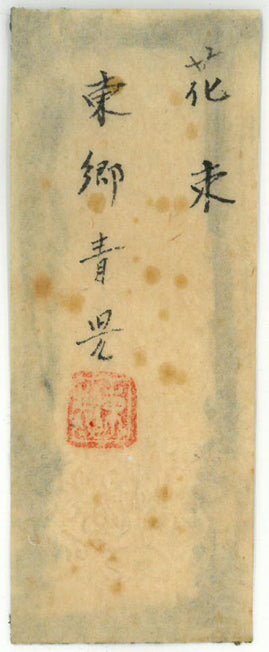 花束
東郷青児